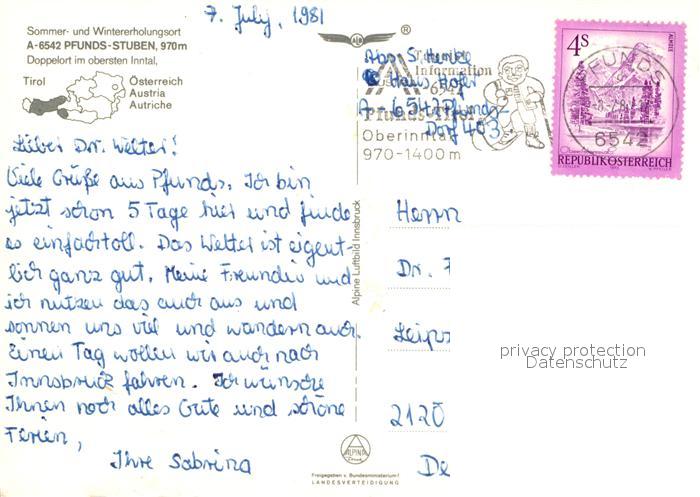 7. July, 1981
Sommer- und Wintererholungsort
A-6542 PFUNDS-STUBEN, 970 m
Doppelort im obersten Inntal,
Tirol
Österreich
Austria
Autriche
Lieber Dr. Welter!
Viele Grüße aus Pfunds. Ich bin
jetzt schon 5 Tage hier und finde
es einfach toll. Das Wetter ist eigent-
lich ganz gut. Meine Freundin und
ich nutzen das auch aus und
sonnen uns viel und wandern auch.
Einen Tag wollen wir auch nach
Innsbruck fahren. Ich wünsche
Ihnen noch alles Gute und schöne
Ferien,
Ihre Sabrina
Alpine Luftbild Innsbruck
®
Abs. S.
Haus
A-6542 Pfunds
Dorf 403
Information
6542
Pfunds-Tirol
Oberinntal
970-1400 m
4S
ALMSEE
REPUBLIK ÖSTERREICH
PFUNDS
6542
Herrn
Dr.
Leipz
2120
De
privacy protection
Datenschutz
ALPINE
Freigegeben v. Bundesministerium f.
LANDESVERTEIDIGUNG